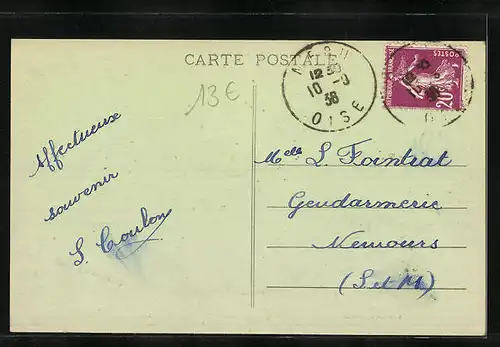 CARTE POSTALE
13 €
MERU
12 30
10 - 9
36
OISE
POSTES
20
Affectueux
souvenir
S. Coulon
Melle L. Fointrat
Gendarmerie
Nemours
(S et M)